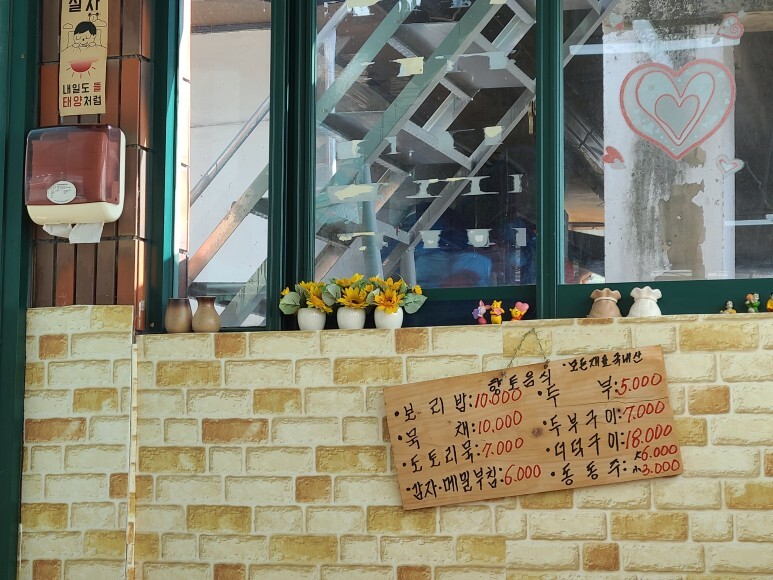 살자
내일도 늘
태양처럼
향토음식 ·모든재료 국내산
·보리밥:10,000
·묵채:10,000
·도토리묵:7,000
·감자·메밀부침:6,000
·두부:5,000
·두부구이:7,000
·더덕구이:18,000
·동동주:大6,000
小3,000